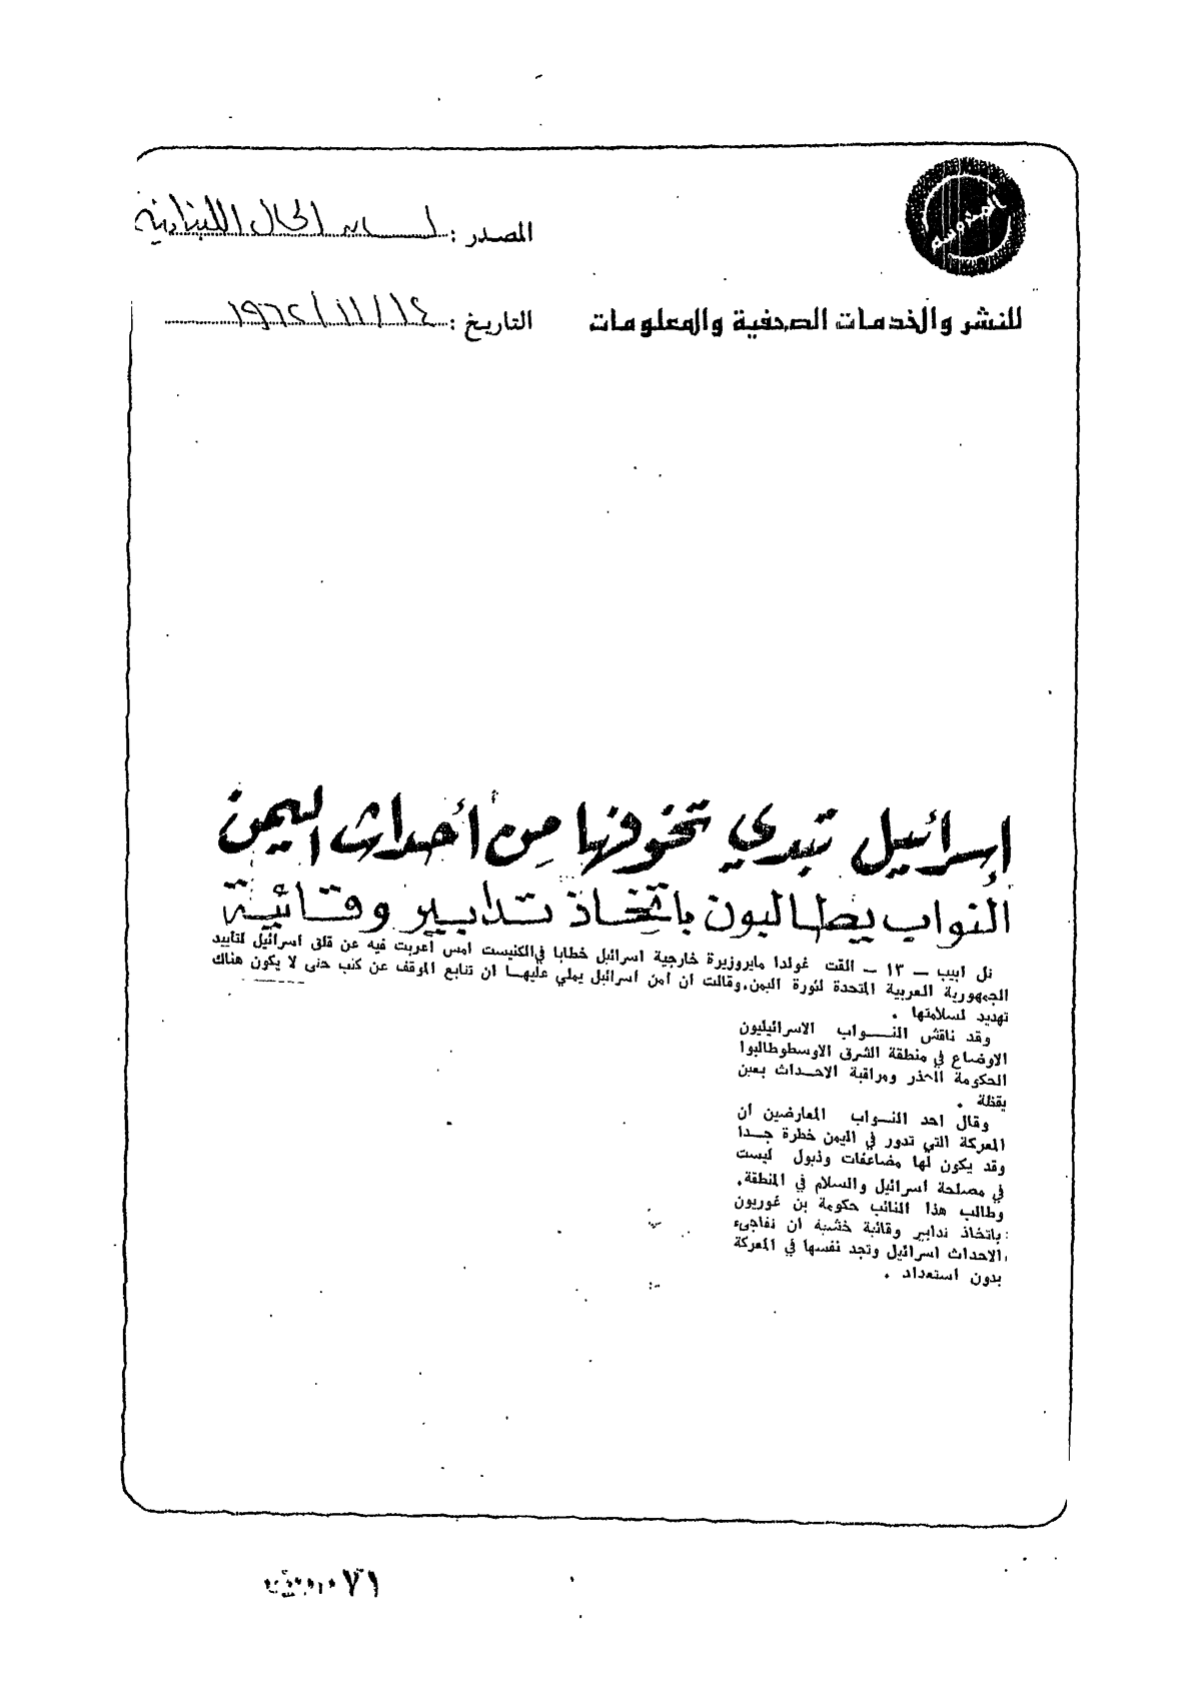 المصدر : لسان الحال اللبنانية
للنشر والخدمات الصحفية والمعلومات
التاريخ : ١٩٦٢/١١/١٤
إسرائيل تبدي تخوفها من أحداث اليمن
النواب يطالبون باتخاذ تدابير وقائية
تل ابيب – ١٣ – القت غولدا مايروزيرة خارجية اسرائيل خطابا في الكنيست امس اعربت فيه عن قلق اسرائيل لتأييد
الجمهورية العربية المتحدة لثورة اليمن، وقالت ان امن اسرائيل يملي عليها ان تتابع الموقف عن كثب حتى لا يكون هناك
تهديد لسلامتها .
وقد ناقش النـــواب الاسرائيليون
الاوضاع في منطقة الشرق الاوسط وطالبوا
الحكومة الحذر ومراقبة الاحداث بعين
يقظة .
وقال احد النــواب المعارضين ان
المعركة التي تدور في اليمن خطرة جــدا
وقد يكون لها مضاعفات وذيول ليست
في مصلحة اسرائيل والسلام في المنطقة.
وطالب هذا النائب حكومة بن غوريون
باتخاذ تدابير وقائية خشية ان تفاجىء
الاحداث اسرائيل وتجد نفسها في المعركة
بدون استعداد .